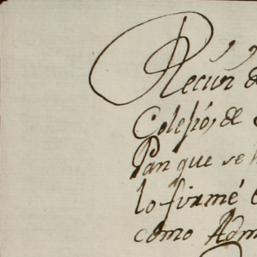 Recivi d
Colegio, de
Pan que se h
lo firmé e
como Adm